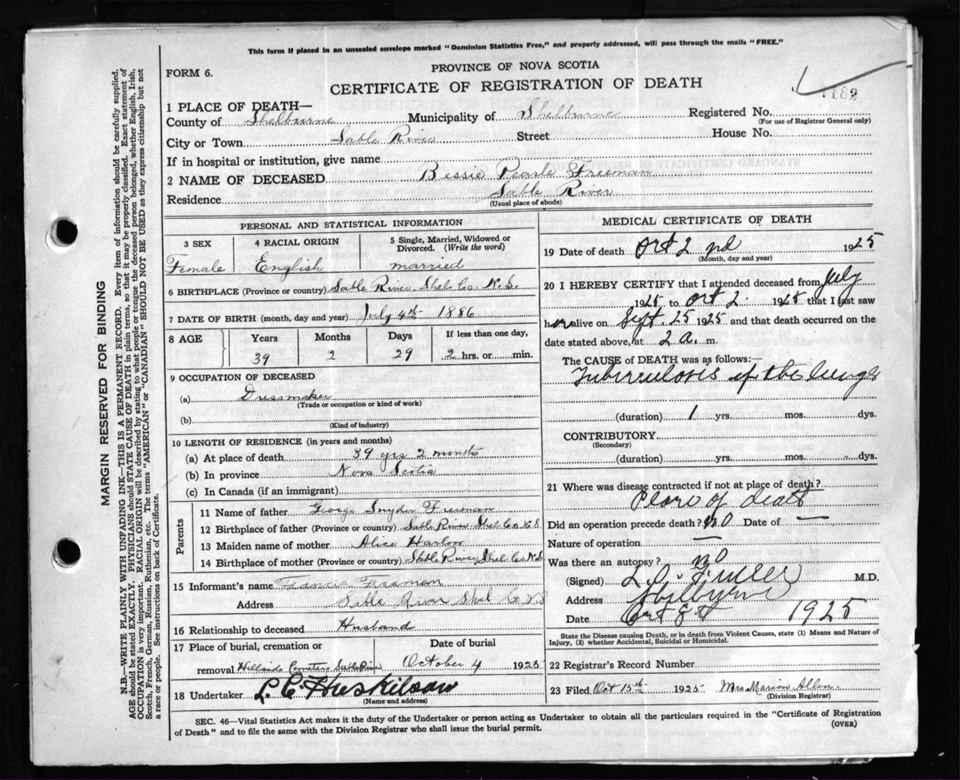 This form if placed in an unsealed envelope marked "Dominion Statistics Free," and properly addressed, will pass through the mails "FREE."
FORM 6.
PROVINCE OF NOVA SCOTIA
CERTIFICATE OF REGISTRATION OF DEATH
1182
1 PLACE OF DEATH—
County of Shelburne Municipality of Shelburne Registered No.
(For use of Registrar General only)
City or Town Sable River Street House No.
If in hospital or institution, give name
2 NAME OF DECEASED Bessie Pearle Freeman
Residence Sable River
(Usual place of abode)
MARGIN RESERVED FOR BINDING
N.B.—WRITE PLAINLY WITH UNFADING INK—THIS IS A PERMANENT RECORD. Every item of information should be carefully supplied.
AGE should be stated EXACTLY. PHYSICIANS should STATE CAUSE OF DEATH in plain terms, so that it may be properly classified. Exact statement of
OCCUPATION is very important. RACIAL ORIGIN will be described by stating to what people or tongue the deceased person belonged, whether English, Irish,
Scotch, French, German, Russian, Ruthenian, etc. The terms "AMERICAN" or "CANADIAN" SHOULD NOT BE USED as they express citizenship but not
a race or people. See instructions on back of Certificate.
PERSONAL AND STATISTICAL INFORMATION
3 SEX 4 RACIAL ORIGIN 5 Single, Married, Widowed or
Divorced. (Write the word)
Female English married
6 BIRTHPLACE (Province or country) Sable River Shel Co. N.S.
7 DATE OF BIRTH (month, day and year) July 4th 1886
8 AGE Years Months Days If less than one day,
39 2 29 2 hrs. or min.
9 OCCUPATION OF DECEASED
(a) Dressmaker
(Trade or occupation or kind of work)
(b)
(Kind of industry)
10 LENGTH OF RESIDENCE (in years and months)
(a) At place of death 39 yrs 2 months
(b) In province Nova Scotia
(c) In Canada (if an immigrant)
Parents
11 Name of father George Snyder Freeman
12 Birthplace of father (Province or country) Sable River Shel Co N S
13 Maiden name of mother Alice Harlow
14 Birthplace of mother (Province or country) Sable River Shel Co N.S
15 Informant's name Francis Freeman
Address Sable River Shel Co N S
16 Relationship to deceased Husband
17 Place of burial, cremation or Date of burial
removal Hillside Cemetery Sable River October 4 1925
18 Undertaker
(Name and address)
MEDICAL CERTIFICATE OF DEATH
19 Date of death Oct 2 nd 1925
(Month, day and year)
20 I HEREBY CERTIFY that I attended deceased from July
1925 to Oct 2. 1925 that I last saw
her alive on Sept. 25 1925 and that death occurred on the
date stated above, at 2 a. m.
The CAUSE of DEATH was as follows:—
Tuberculosis of the lungs
(duration) 1 yrs. mos. dys.
CONTRIBUTORY
(Secondary)
(duration) yrs. mos. dys.
21 Where was disease contracted if not at place of death?
Place of death
Did an operation precede death? no Date of —
Nature of operation —
Was there an autopsy? no
(Signed) M.D.
Address Shelburne
Date Oct 1925
State the Disease causing Death, or in death from Violent Causes, state (1) Means and Nature of
Injury, (2) whether Accidental, Suicidal or Homicidal.
22 Registrar's Record Number
23 Filed Oct 15th 1925 Mrs Marion Allen
(Division Registrar)
SEC. 46—Vital Statistics Act makes it the duty of the Undertaker or person acting as Undertaker to obtain all the particulars required in the "Certificate of Registration
of Death" and to file the same with the Division Registrar who shall issue the burial permit. (OVER)